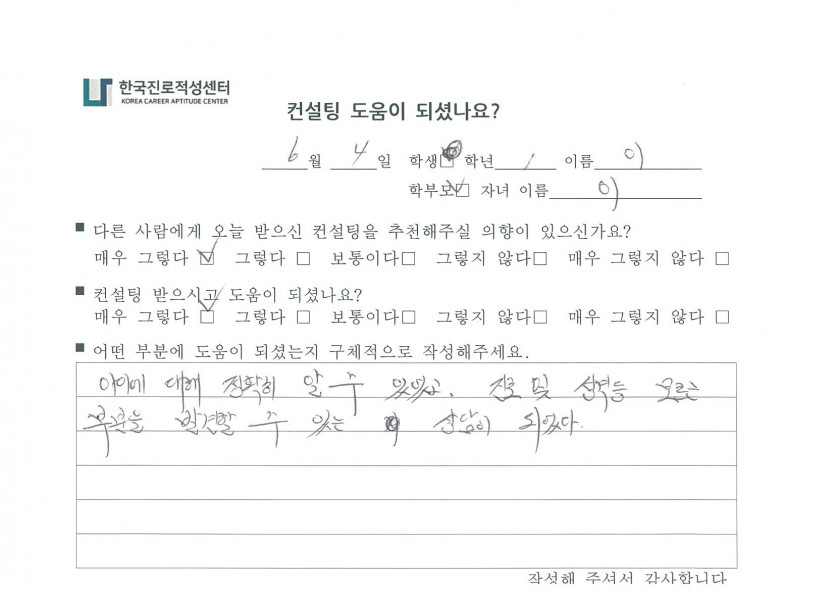 한국진로적성센터
KOREA CAREER APTITUDE CENTER
컨설팅 도움이 되셨나요?
6월 4일 학생□ 학년 1 이름 이
학부모□ 자녀 이름 이
■ 다른 사람에게 오늘 받으신 컨설팅을 추천해주실 의향이 있으신가요?
매우 그렇다 ☑ 그렇다 □ 보통이다□ 그렇지 않다□ 매우 그렇지 않다 □
■ 컨설팅 받으시고 도움이 되셨나요?
매우 그렇다 ☑ 그렇다 □ 보통이다□ 그렇지 않다□ 매우 그렇지 않다 □
■ 어떤 부분에 도움이 되셨는지 구체적으로 작성해주세요.
아이에 대해 정확히 알 수 있었고. 진로 및 성격등 모르는
부분을 발견할 수 있는 상담이 되었다.
작성해 주셔서 감사합니다